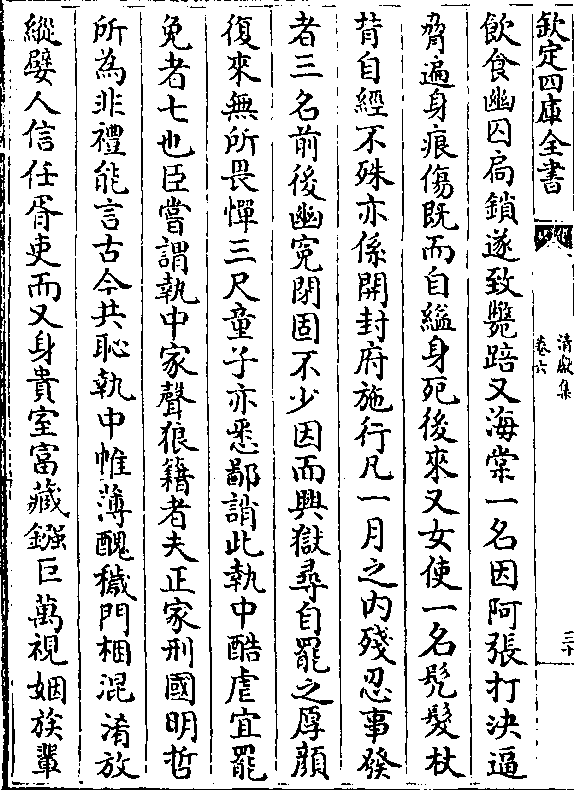 欽定四庫全書
清獻集
卷六
三十
飲食幽囚扃鎖遂致斃踣又海棠一名因阿張打決逼
脅遍身痕傷既而自縊身死後來又女使一名髠髮杖
背自經不殊亦係開封府施行凡一月之内殘忍事發
者三名前後幽寃閉固不少因而興獄尋自罷之厚顔
復來無所畏憚三尺童子亦悉鄙誚此執中酷虐宜罷
免者七也臣嘗謂執中家聲狼籍者夫正家刑國明哲
所為非禮能言古今共恥執中帷薄醜穢門梱混淆放
縱嬖人信任胥吏而又身貴室富藏鏹巨萬視姻族輩